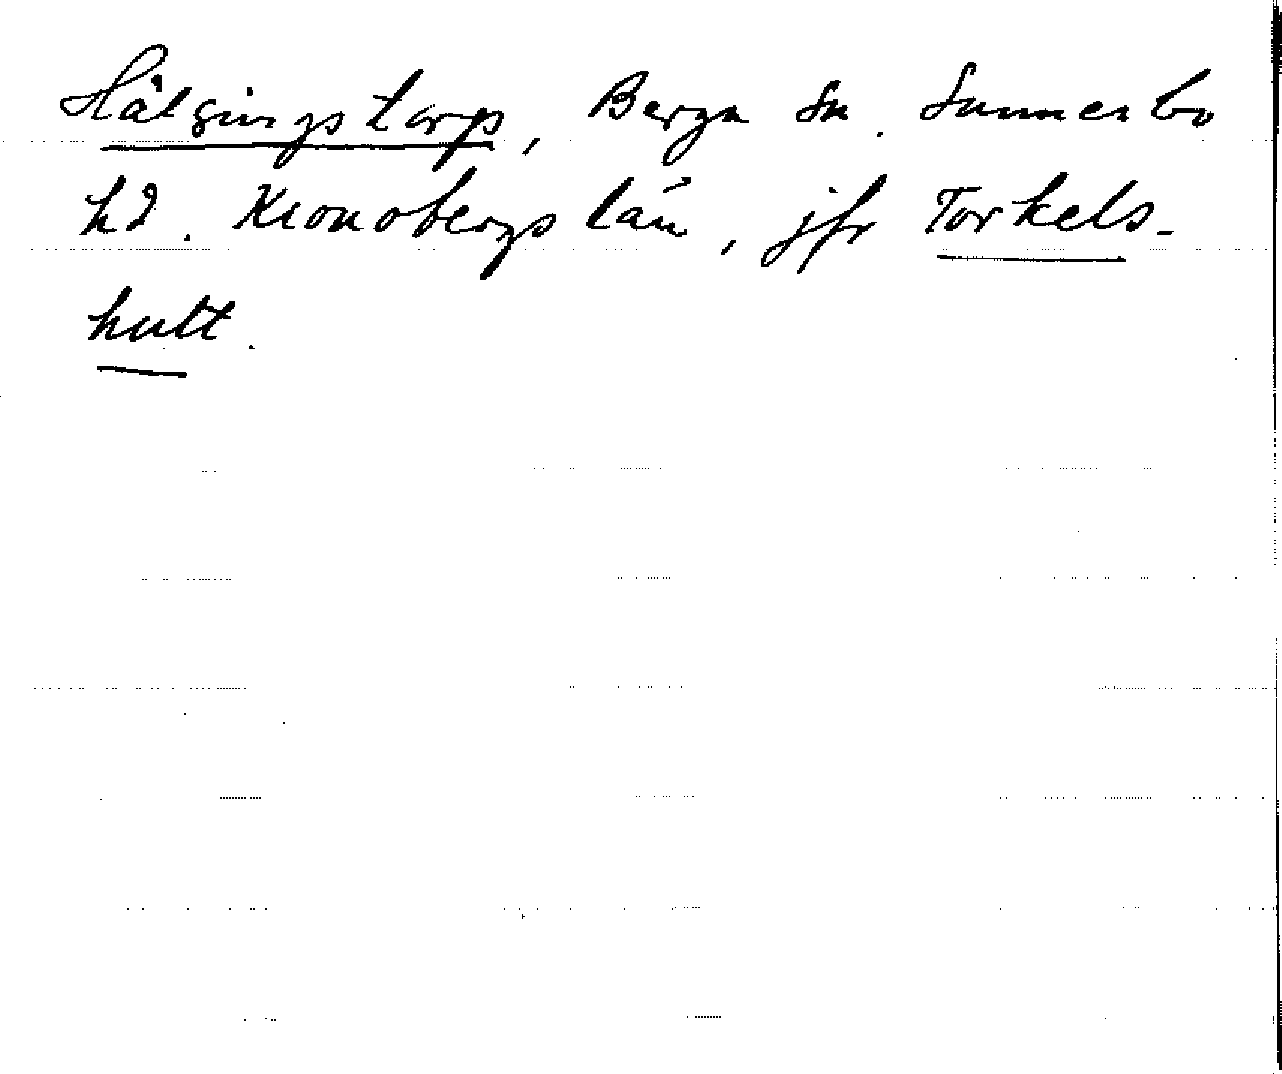 Hälgingstorp, Berga sn. Sunnerbo
hd. Kronobergs län, jfr Torkels-
hult.